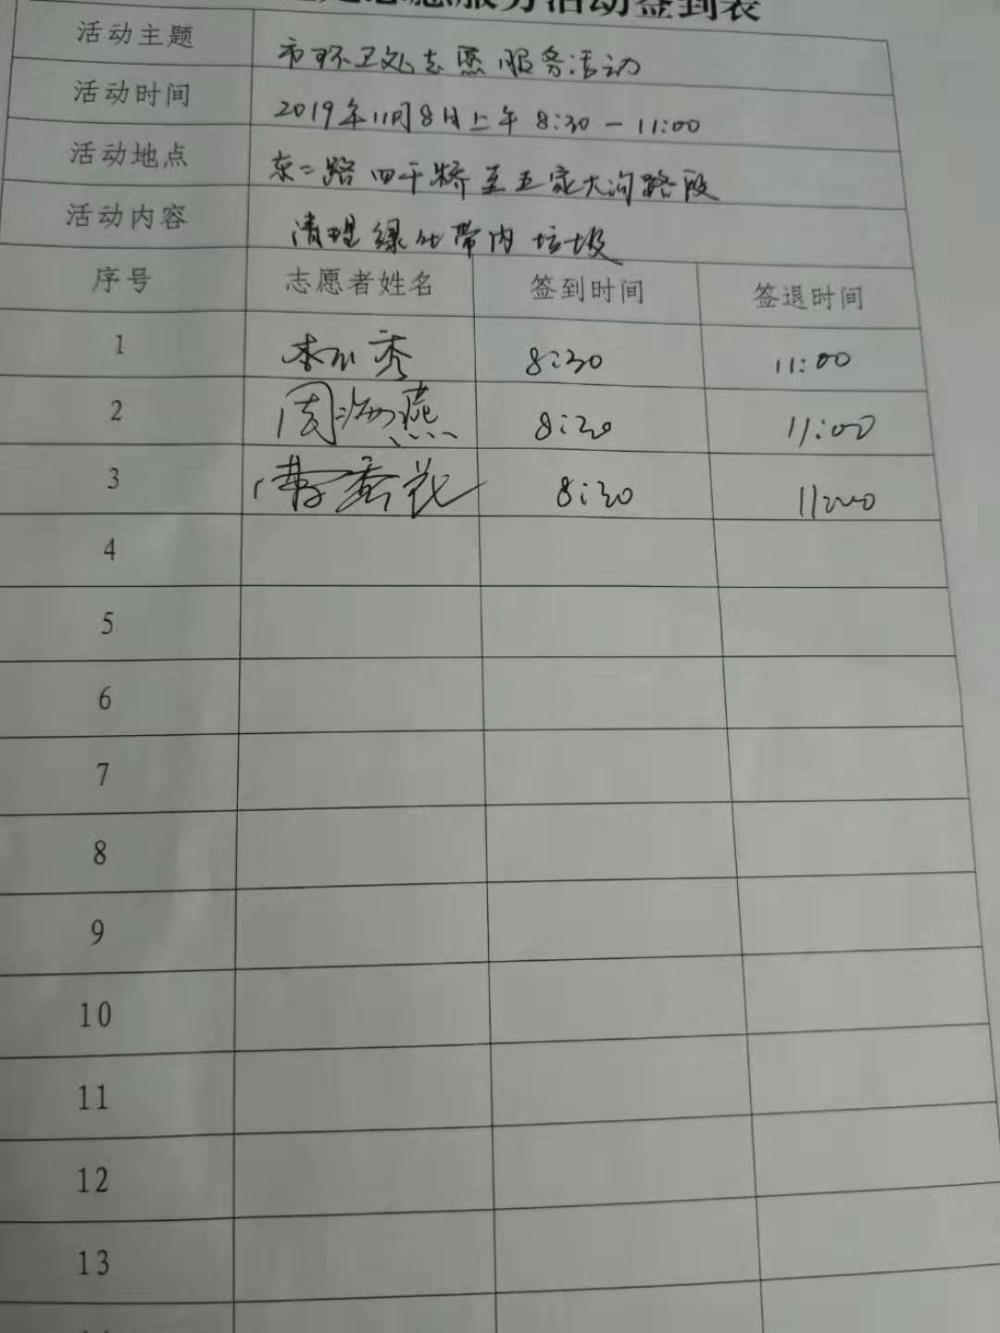 志愿服务活动签到表
活动主题 市环卫处志愿服务活动
活动时间 2019年11月8日上午 8:30-11:00
活动地点 东二路四干桥至五家大沟路段
活动内容 清理绿化带内垃圾
序号 志愿者姓名 签到时间 签退时间
1 8:30 11:00
2 周海燕 8:30 11:00
3 曹秀花 8:30 11:00
4
5
6
7
8
9
10
11
12
13